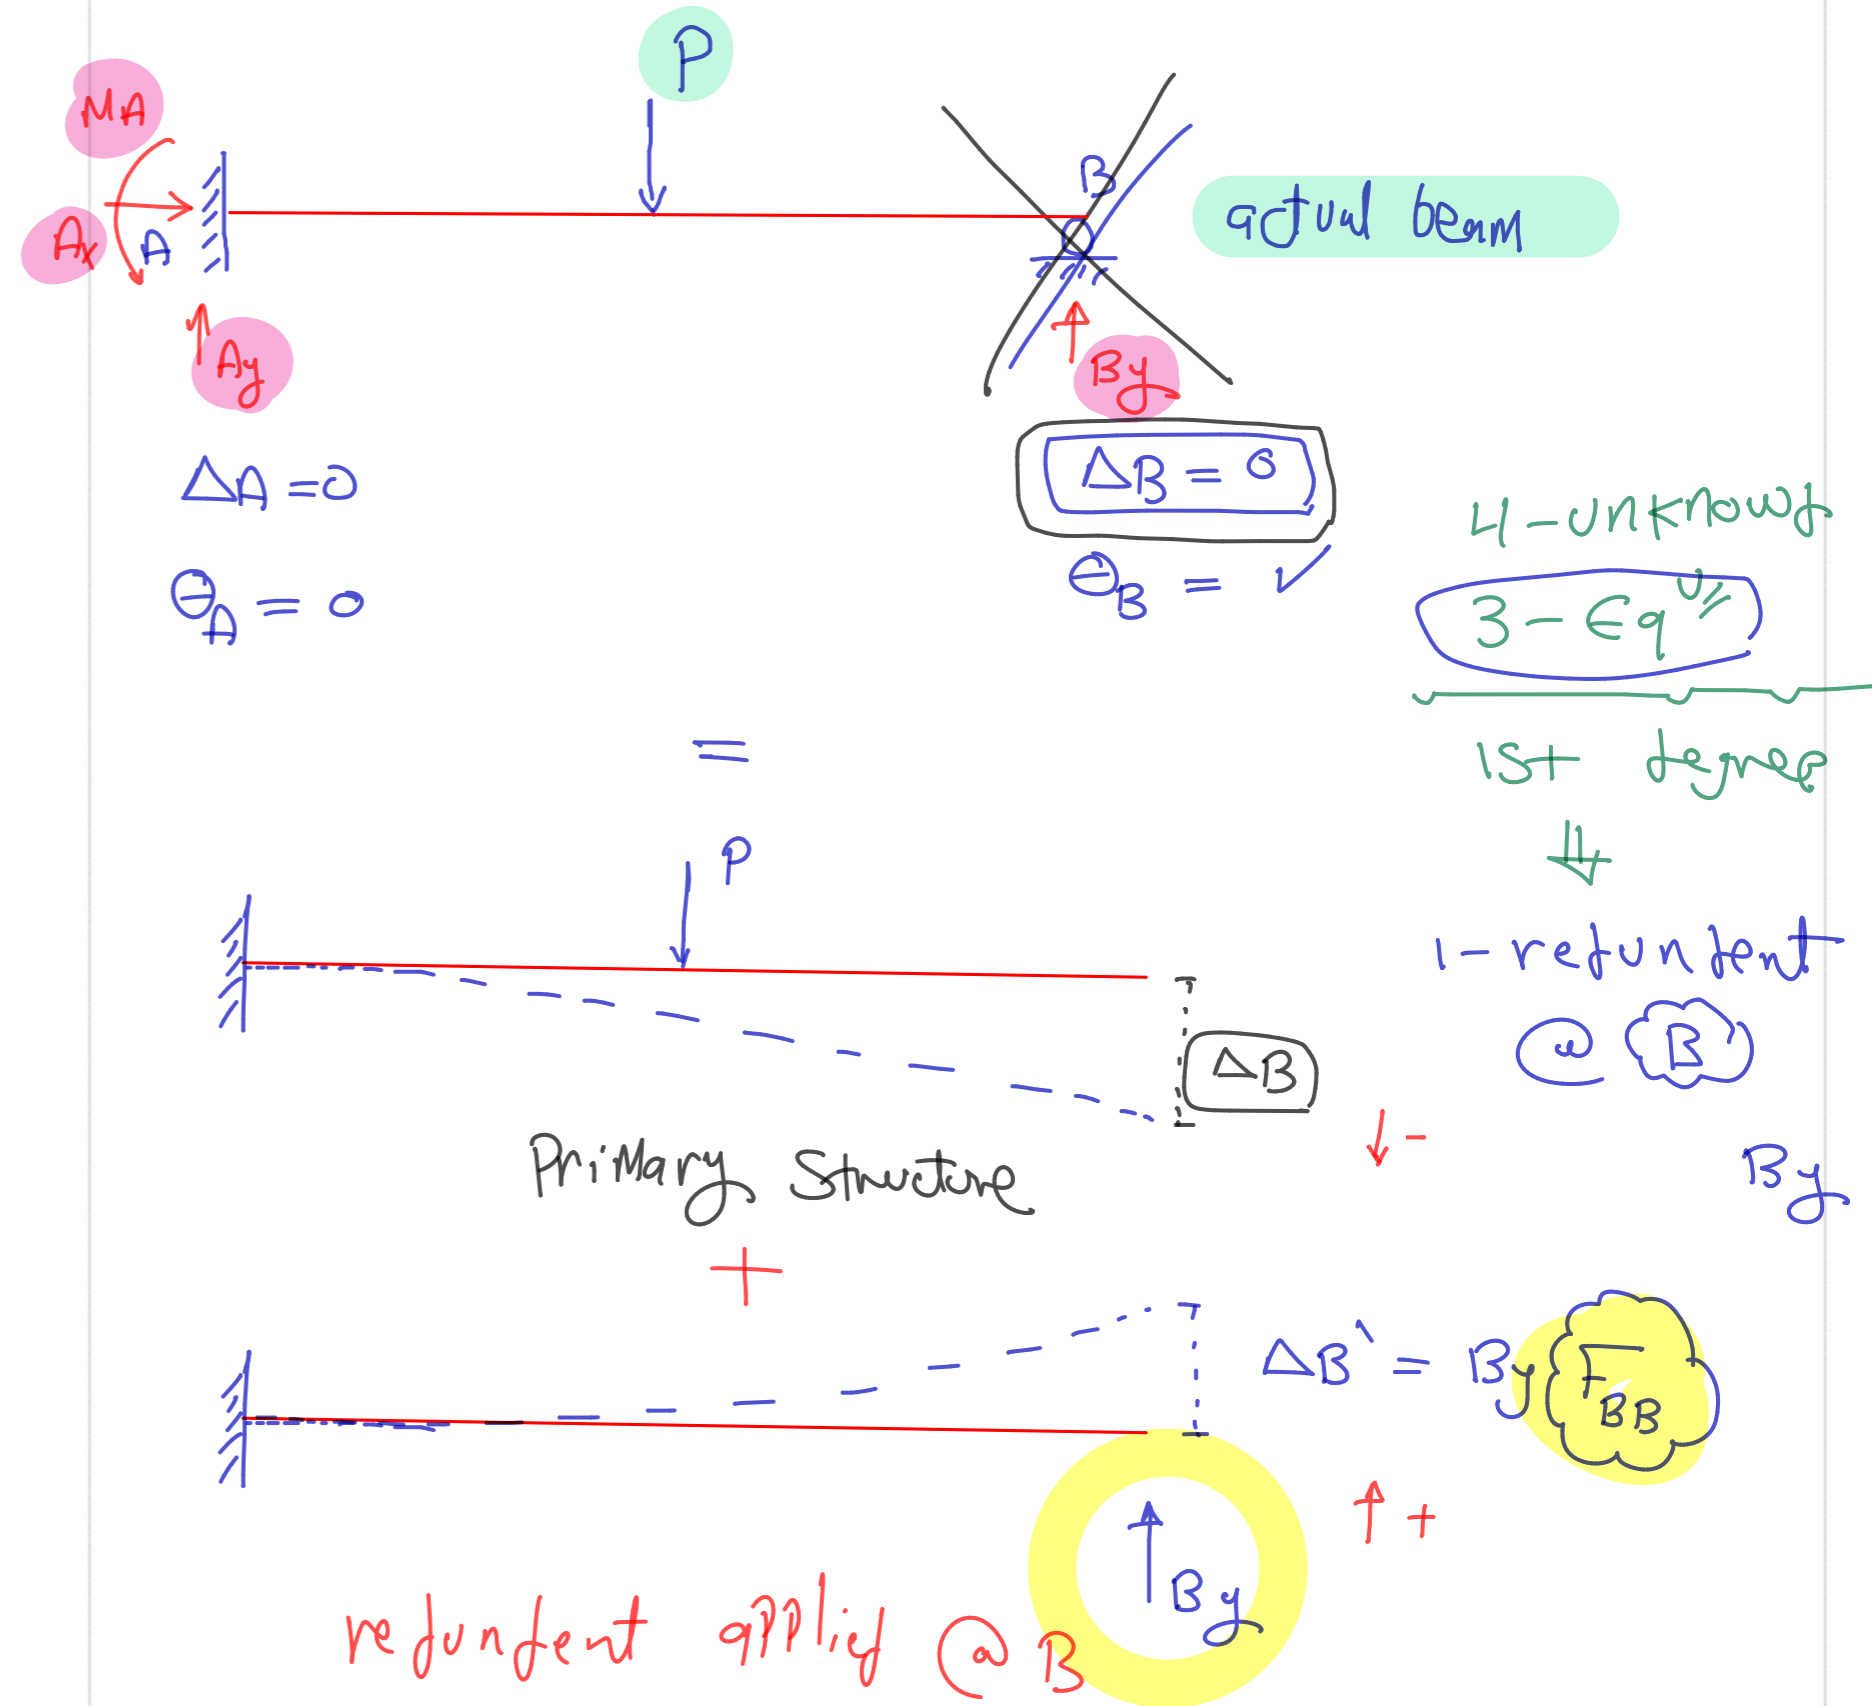 P
MA
B
actual beam
Ax
A
Ay
By
ΔB = 0
ΔA = 0
4 - unknowns
θB = ✓
θA = 0
3 - Eqns
1st degree
=
⇓
P
1 - redundent
@ B
ΔB
↓ -
Primary Structure
By
+
ΔB' = By FBB
↑ +
By
redundent applied @ B